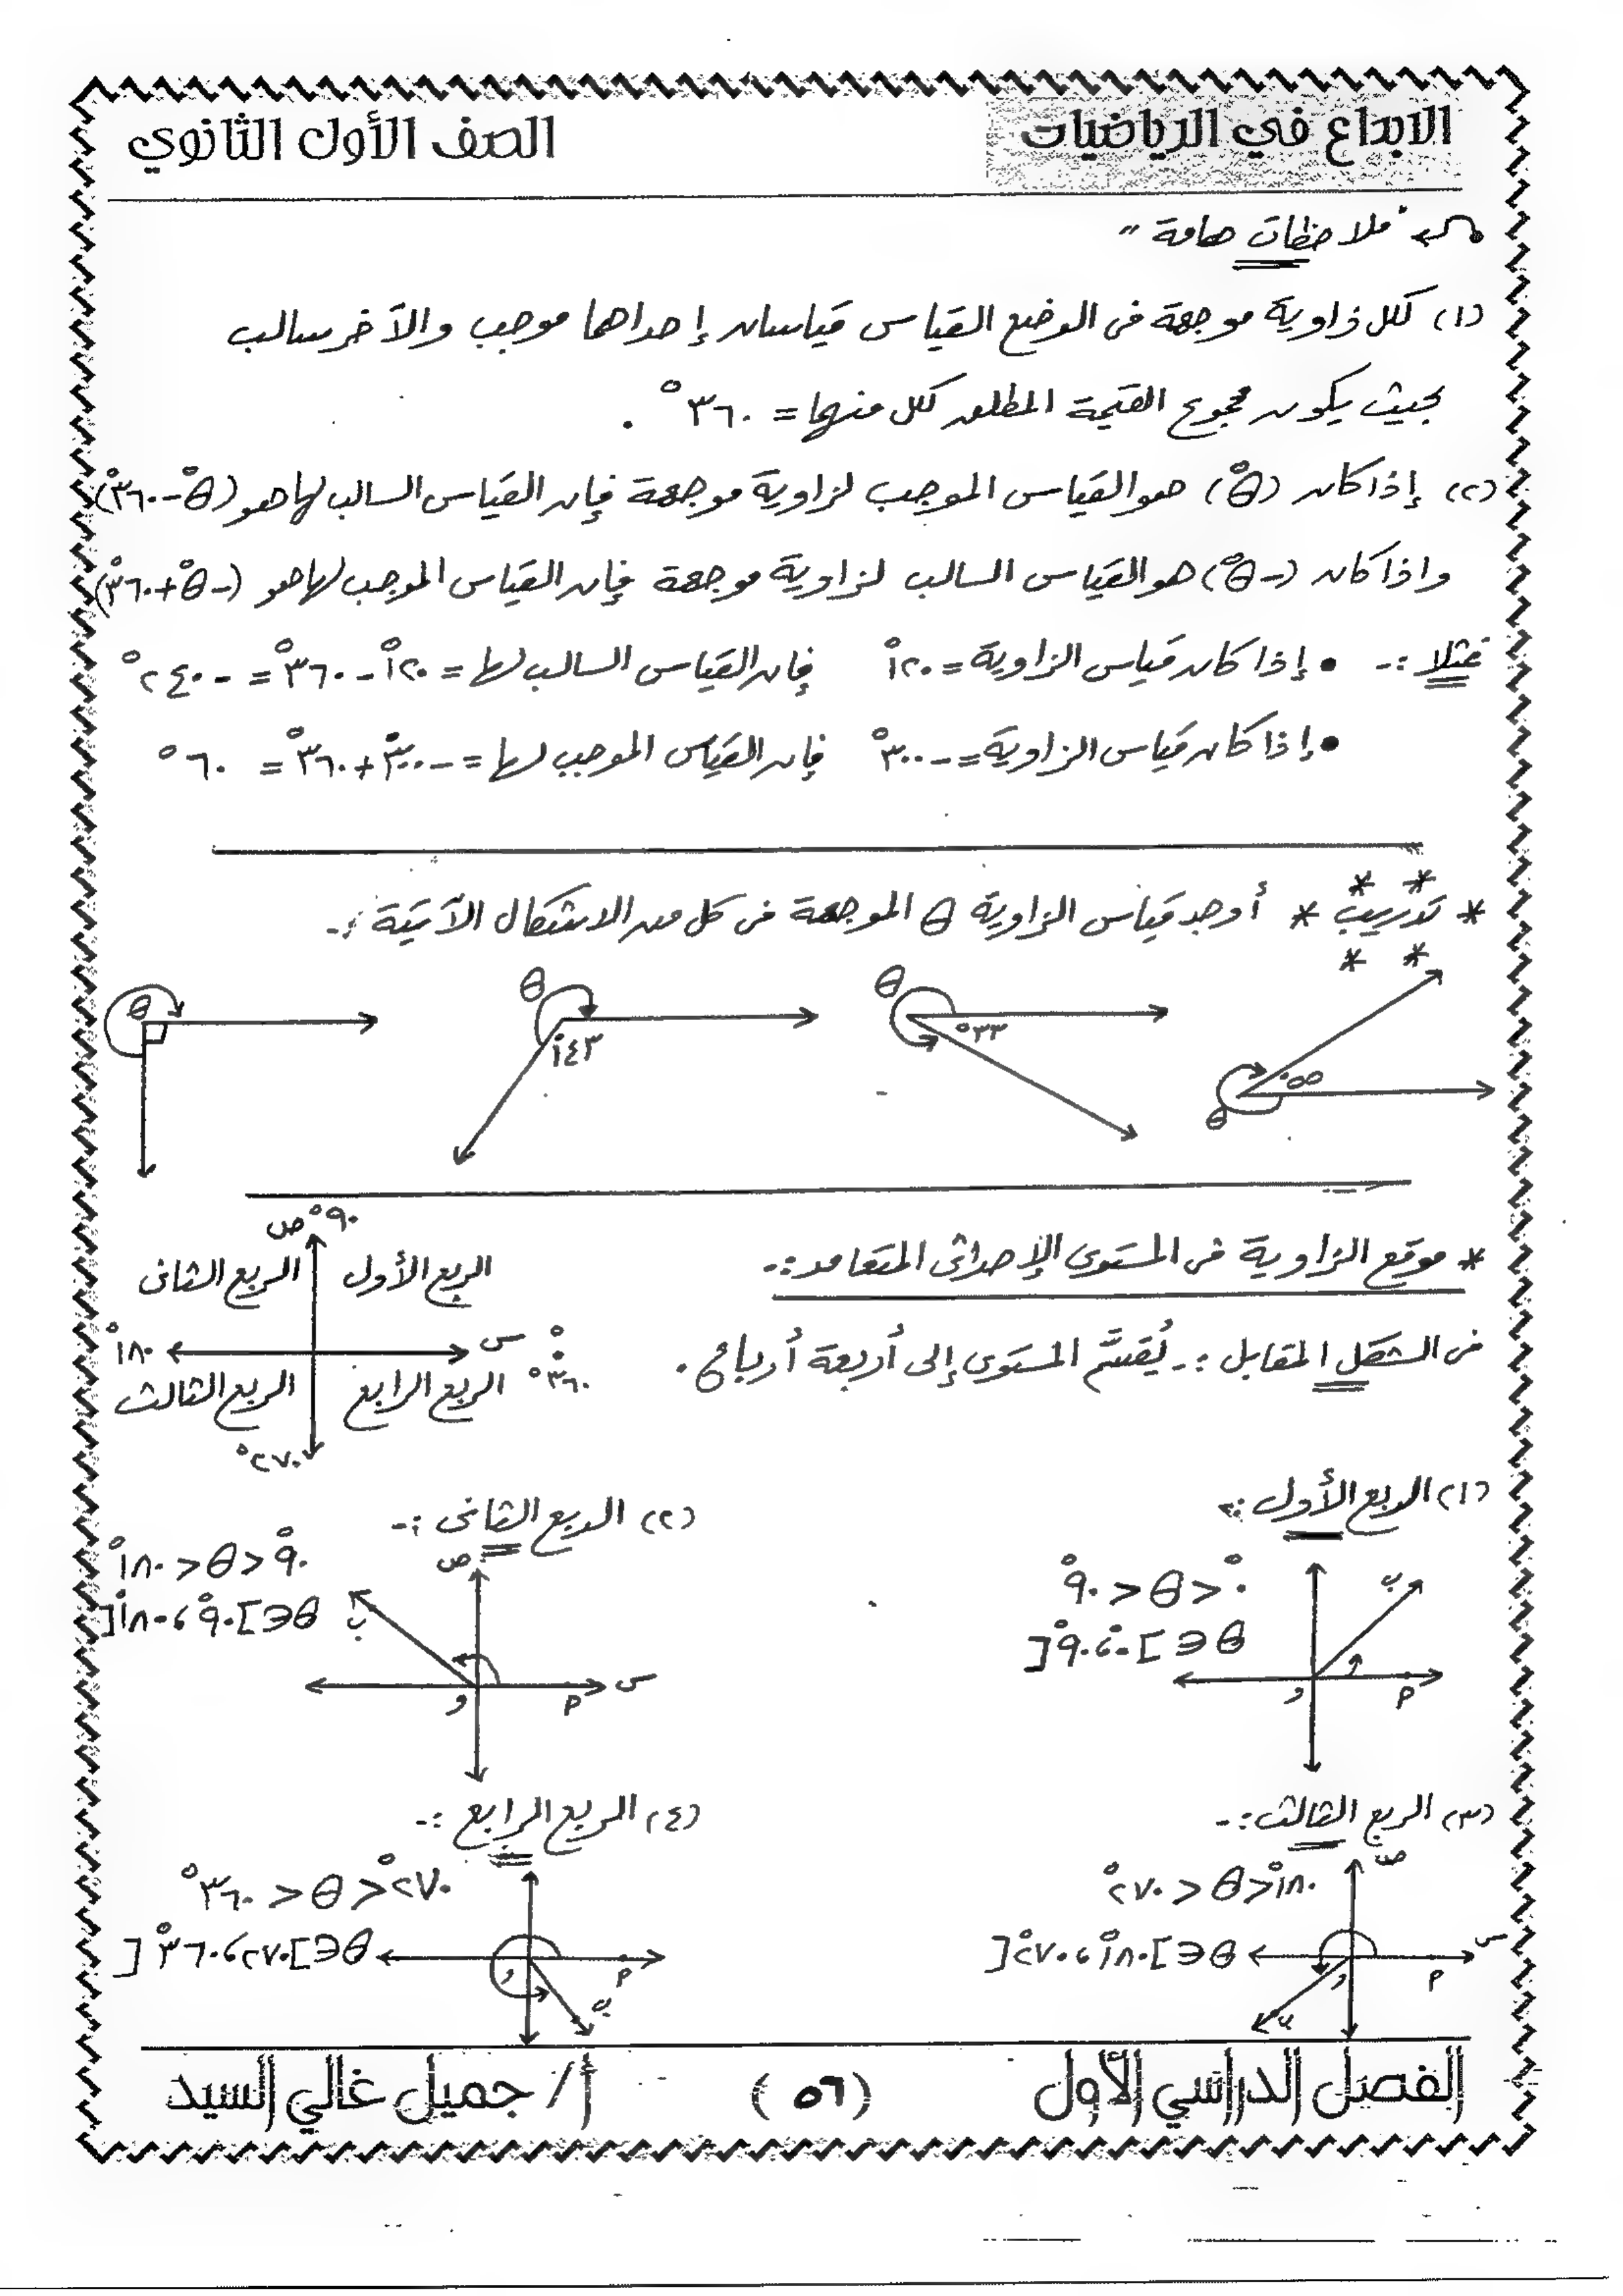 الابداع في الرياضيات
الصف الأول الثانوي
" ملاحظات هامة "
(١) لكل زاوية موجهة فى الوضع القياسى قياسان إحداهما موجب والآخر سالب
بحيث يكون مجموع القيمة المطلقه لكل منهما = ٣٦٠° .
(٢) إذا كان (θ°) هو القياس الموجب لزاوية موجهة فإن القياس السالب لها هو (θ° - ٣٦٠°)
وإذا كان (-θ°) هو القياس السالب لزاوية موجهة فإن القياس الموجب لها هو (-θ° + ٣٦٠°)
فمثلا :- • إذا كان قياس الزاوية = ١٢٠° فإن القياس السالب لها = ١٢٠° - ٣٦٠° = - ٢٤٠°
• إذا كان قياس الزاوية = - ٣٠٠° فإن القياس الموجب لها = - ٣٠٠° + ٣٦٠° = ٦٠°
* تدريب * أوجد قياس الزاوية θ الموجهة فى كل من الاشكال الآتية :-
θ ٥٥°
θ ٣٣°
θ ١٤٣°
θ
* موقع الزاوية فى المستوى الإحداثى المتعامد :-
فى الشكل المقابل :- يُقسَّم المستوى إلى أربعة أرباع .
ص ٩٠°
الربع الأول الربع الثانى
س ٠° ١٨٠°
٣٦٠° الربع الرابع الربع الثالث
٢٧٠°
(١) الربع الأول :-
٠° < θ < ٩٠°
θ ∈ ]٠° ، ٩٠°[
ب و م
(٢) الربع الثانى :-
٩٠° < θ < ١٨٠°
θ ∈ ]٩٠° ، ١٨٠°[
ص ب س و م
(٣) الربع الثالث :-
١٨٠° < θ < ٢٧٠°
θ ∈ ]١٨٠° ، ٢٧٠°[
ص س و م ب
(٤) الربع الرابع :-
٢٧٠° < θ < ٣٦٠°
θ ∈ ]٢٧٠ ، ٣٦٠°[
و م ب
الفصل الدراسي الأول
(٥٦)
أ / جميل غالي السيد